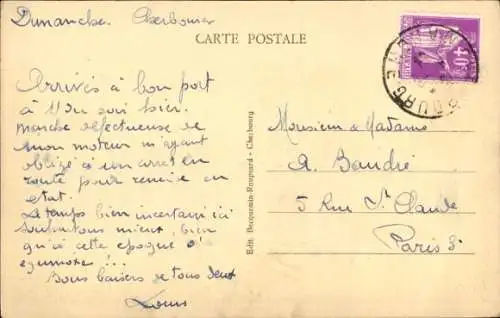 Dimanche. Cherbourg
CARTE POSTALE
Arrivés à bon port
à 11h du soir hier.
marche défectueuse de
mon moteur m'ayant
obligé à un arrêt en
route pour remise en
état.
Le temps bien incertain ici
souhaitons mieux, bien
qu'à cette époque d'
équinoxe !..
Bons baisers de tous deux
Louis
Edit. Becquemin-Roupnard - Cherbourg
Monsieur & Madame
A. Baudré
5 Rue St Claude
Paris 3e